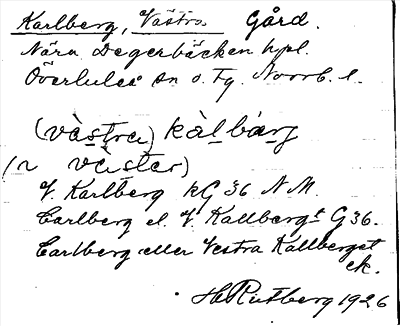 Karlberg, Västra. Gård.
Nära Degerbäcken hpl.
Överluleå sn o. tg. Norrb. l.
(västra) kàlbárg
(n väster)
V. Karlberg kG 36 N.M.
Carlberg el. V. Kallberget G 36.
Carlberg eller Vestra Kallberget
ek.
H. Rutberg 1926